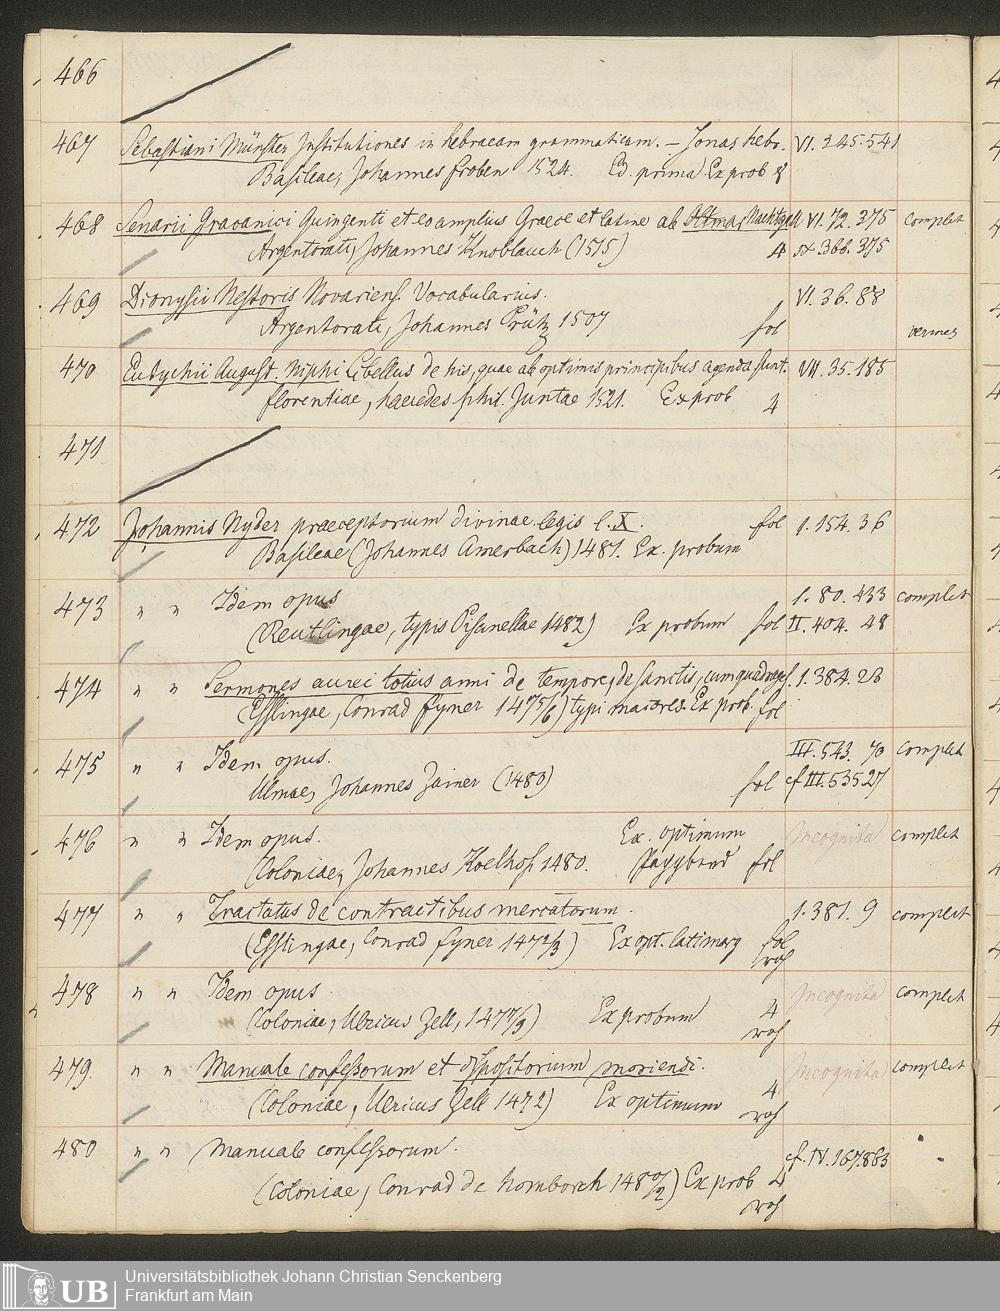 466
467 Sebastiani Münster Institutiones in hebraeam grammaticam. – Jonas hebr. VI. 245. 541
Basileae, Johannes Froben 1524. Ed. prima Ex prob 8
468 Senarii Gravanici Quingenti et eo amplius Graece et latine ab Ottmar Nachtgall VI. 72. 375 complet
Argentorati, Johannes Knoblauch (1515) 4 366. 375
469 Dionysii Nestoris Novariens. Vocabularius. VI. 36. 88
Argentorati, Johannes Prütz 1507 fol vermes
470 Eutychii August. Niphi Libellus de his, quae ab optimis principibus agenda sunt. VII. 35. 185
Florentiae, haeredes phil. Juntae 1521. Ex prob 4
471
472 Johannis Nyder praeceptorium divinae legis l. X. fol 1. 154. 36
Basileae (Johannes Amerbach) 1481. Ex. probum
473 " " Idem opus 1. 80. 433 complet
(Reutlingae, typis Pisanellae 1482) Ex probum fol II. 404. 48
474 " " Sermones aurei totius anni de tempore, de Sanctis, cum quadrages. 1. 384. 23
(Esslingae, Conrad Fyner 1475/6) typi maiores. Ex prob. fol
475 " " Idem opus. III. 543. 70 complet
Ulmae, Johannes Zainer (1480) fol cf III. 535 27
476 " " Idem opus. Ex. optimum Incognita complet
(Coloniae, Johannes Koelhof 1480. fol
477 " " Tractatus de contractibus mercatorum. 1. 381. 9 complet
(Esslingae, Conrad Fyner 1472/3) Ex opt. lat. marg fol
roh
478 " " Idem opus. Incognita complet
(Coloniae, Ulricus Zell, 1477/9) Ex probum 4
roh
479. " " Manuale confessorum et dispositorium moriendi. Incognita complet
(Coloniae, Ulricus Zell 1472) Ex optimum 4
roh
480 " " Manuale confessorum. cf. IV. 167. 863
(Coloniae, Conrad de Homborch 1480/2) Ex prob 4
roh
UB Universitätsbibliothek Johann Christian Senckenberg
Frankfurt am Main